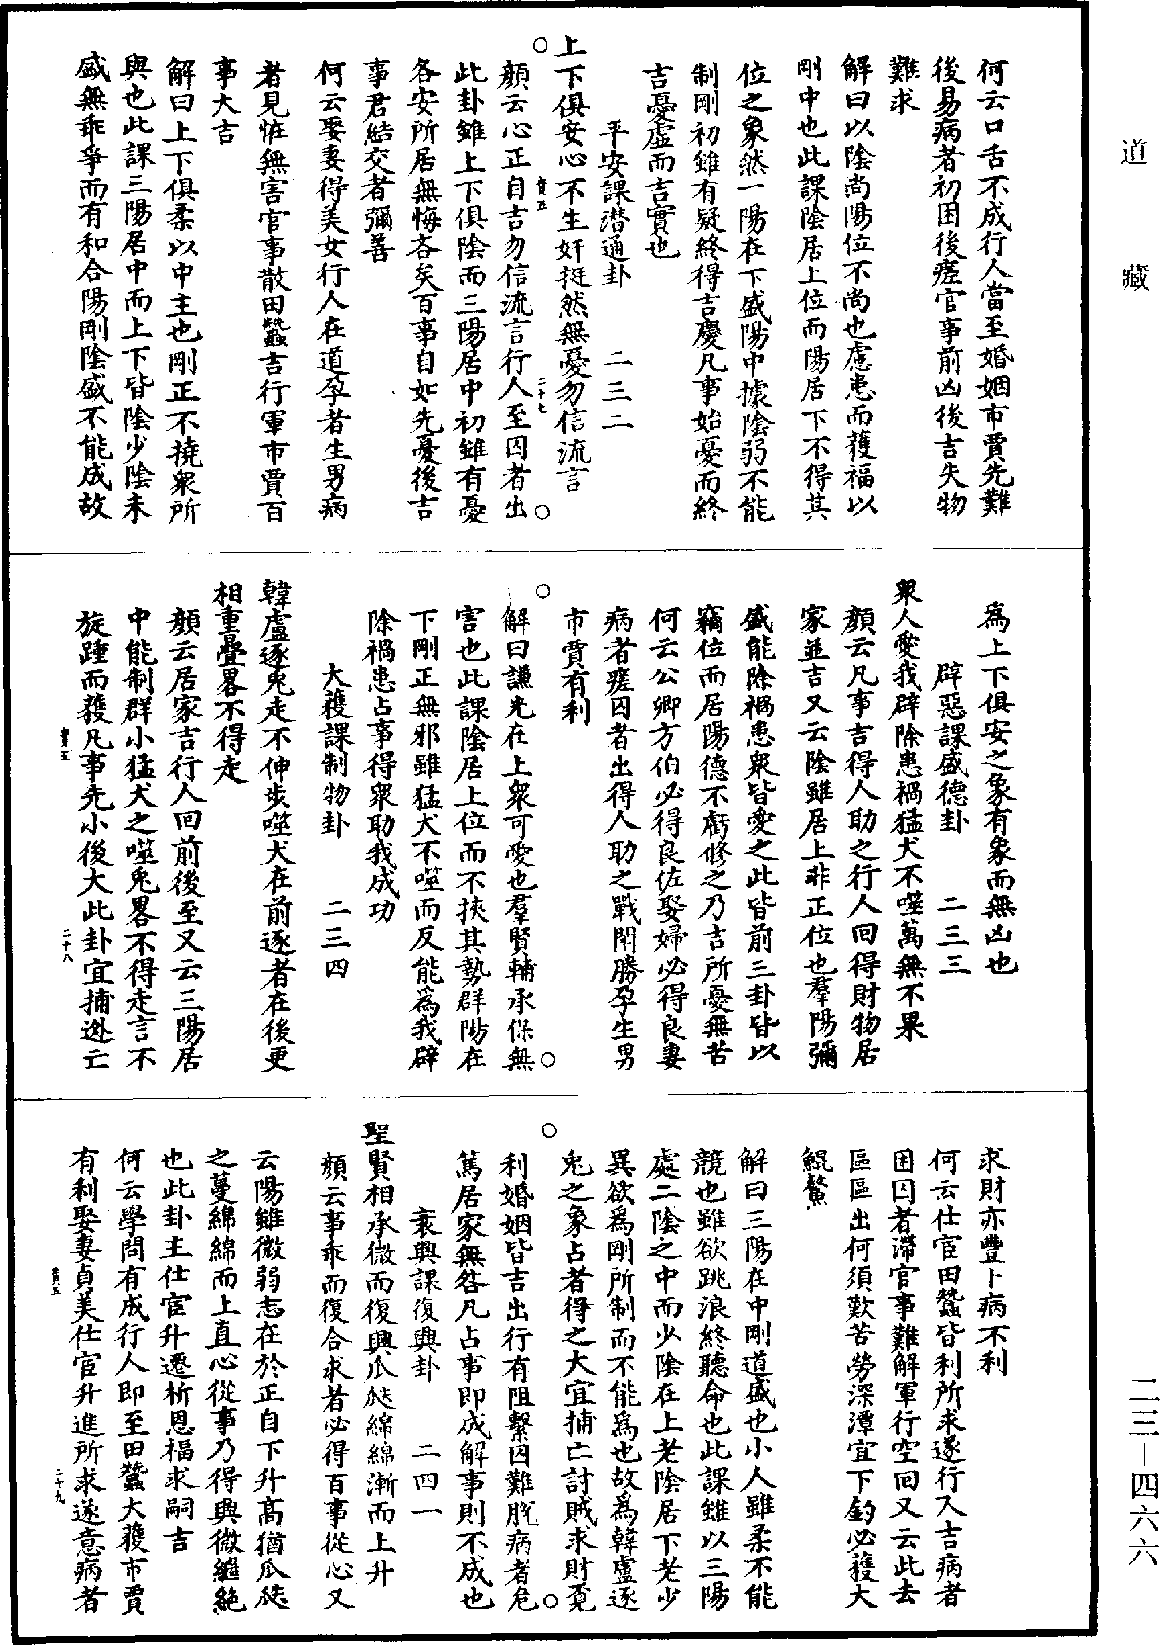 道藏
何云口舌不成行人當至婚姻市賈先難
後易病者初困後瘥官事前凶後吉失物
難求
解曰以陰尚陽位不尚也慮患而獲福以
剛中也此課陰居上位而陽居下不得其
位之象然一陽在下盛陽中據陰弱不能
制剛初雖有疑終得吉慶凡事始憂而終
吉憂虛而吉實也
平安課潛通卦 二三二
上下俱安心不生奸挺然無憂勿信流言
顏云心正自吉勿信流言行人至囚者出
此卦雖上下俱陰而三陽居中初雖有憂
各安所居無悔吝矣百事自如先憂後吉
事君結交者彌善
何云娶妻得美女行人在道孕者生男病
者見恠無害官事散田蠶吉行軍市賈百
事大吉
解曰上下俱柔以中主也剛正不撓衆所
與也此課三陽居中而上下皆陰少陰未
盛無乖爭而有和合陽剛陰盛不能成故
為上下俱安之象有象而無凶也
辟惡課盛德卦 二三三
衆人愛我辟除患禍猛犬不噬萬無不果
顏云凡事吉得人助之行人回得財物居
家並吉又云陰雖居上非正位也羣陽彌
盛能除禍患衆皆愛之此皆前三卦皆以
竊位而居陽德不虧修之乃吉所憂無苦
何云公卿方伯必得良佐娶婦必得良妻
病者瘥囚者出得人助之戰鬪勝孕生男
市賈有利
解曰謙光在上衆可愛也羣賢輔承保無
害也此課陰居上位而不挾其勢群陽在
下剛正無邪雖猛犬不噬而反能爲我辟
除禍患占事得衆助我成功
大獲課制物卦 二三四
韓盧逐兎走不伸步噬犬在前逐者在後更
相重疊畧不得走
顏云居家吉行人回前後至又云三陽居
中能制群小猛犬之噬兎畧不得走言不
旋踵而獲凡事先小後大此卦宜捕逃亡
求財亦豐卜病不利
何云仕宦田蠶皆利所求遂行人吉病者
困囚者滯官事難解軍行空回又云此去
區區出何須歎苦勞深潭宜下釣必獲大
鯤鰲
解曰三陽在中剛道盛也小人雖柔不能
競也雖欲跳浪終聽命也此課雖以三陽
處二陰之中而少陰在上老陰居下老少
異欲爲剛所制而不能爲也故爲韓盧逐
兎之象占者得之大宜捕亡討賊求財覔
利婚姻皆吉出行有阻繫囚難脫病者危
篤居家無咎凡占事即成解事則不成也
衰興課復興卦 二四一
聖賢相承微而復興瓜瓞綿綿漸而上升
顏云事乖而復合求者必得百事從心又
云陽雖微弱志在於正自下升高猶瓜瓞
之蔓綿綿而上直心從事乃得興微繼絕
也此卦主仕官升遷祈恩福求嗣吉
何云學問有成行人即至田蠶大獲市賈
有利娶妻貞美仕官升進所求遂意病者
二三—四六六